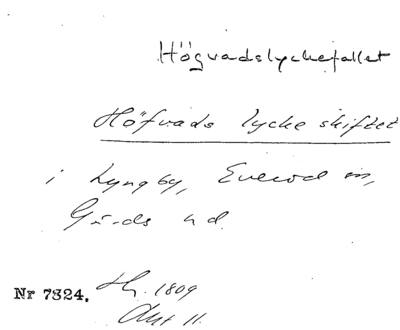 Högvadslyckefallet
Höfvads lycke skiftet
i Lyngby, Everöd sn,
Gärds hd.
Nr 7324. Hy. 1809
Akt 11.